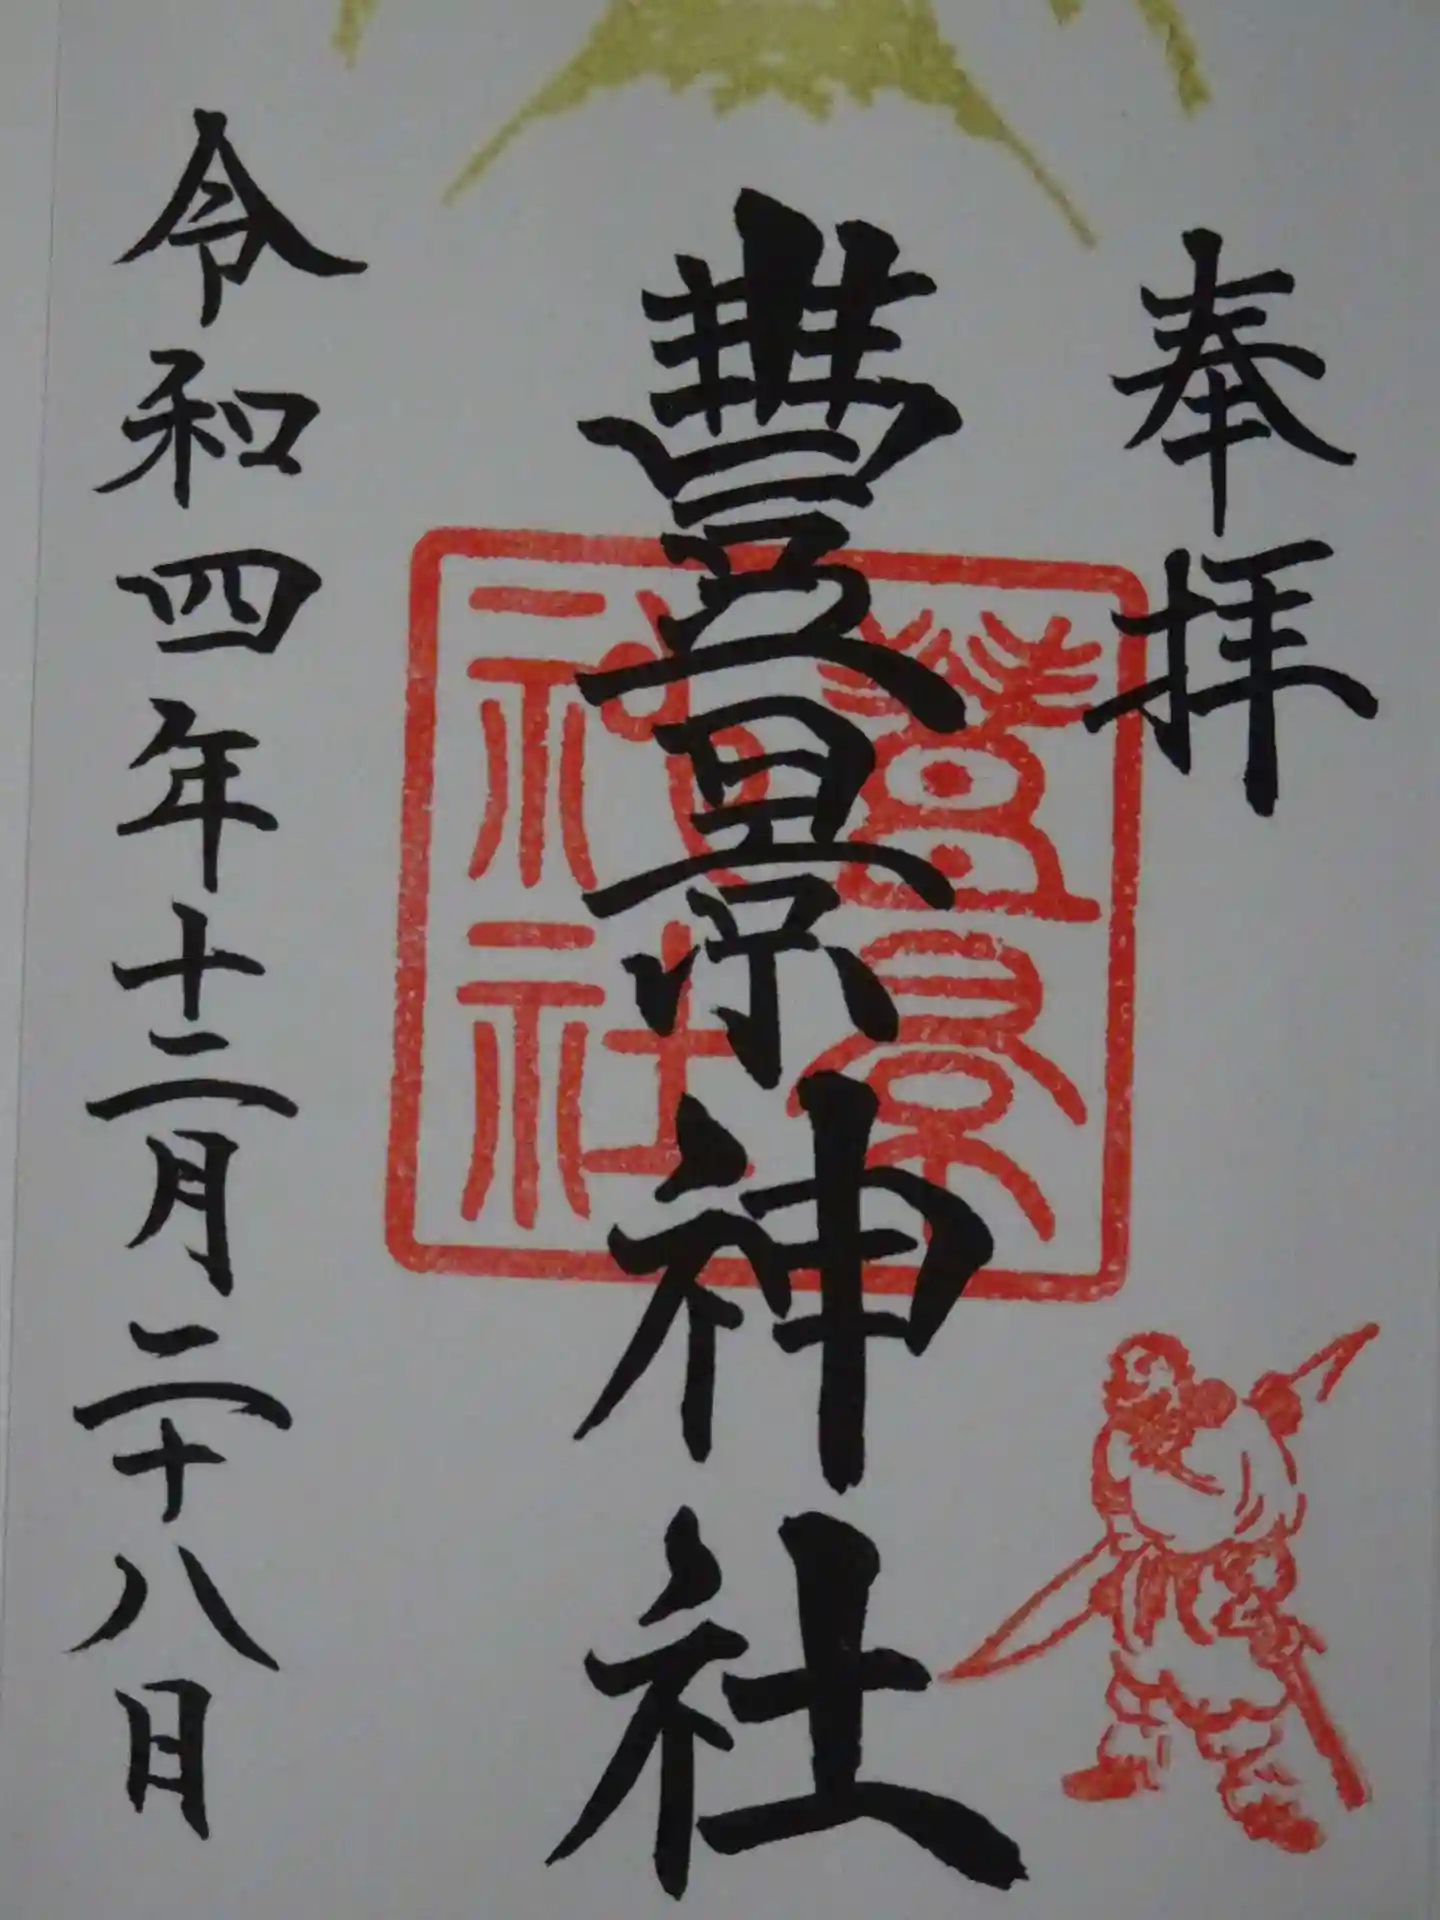 奉拝
豐景神社
令和四年十二月二十八日
豐景
神社